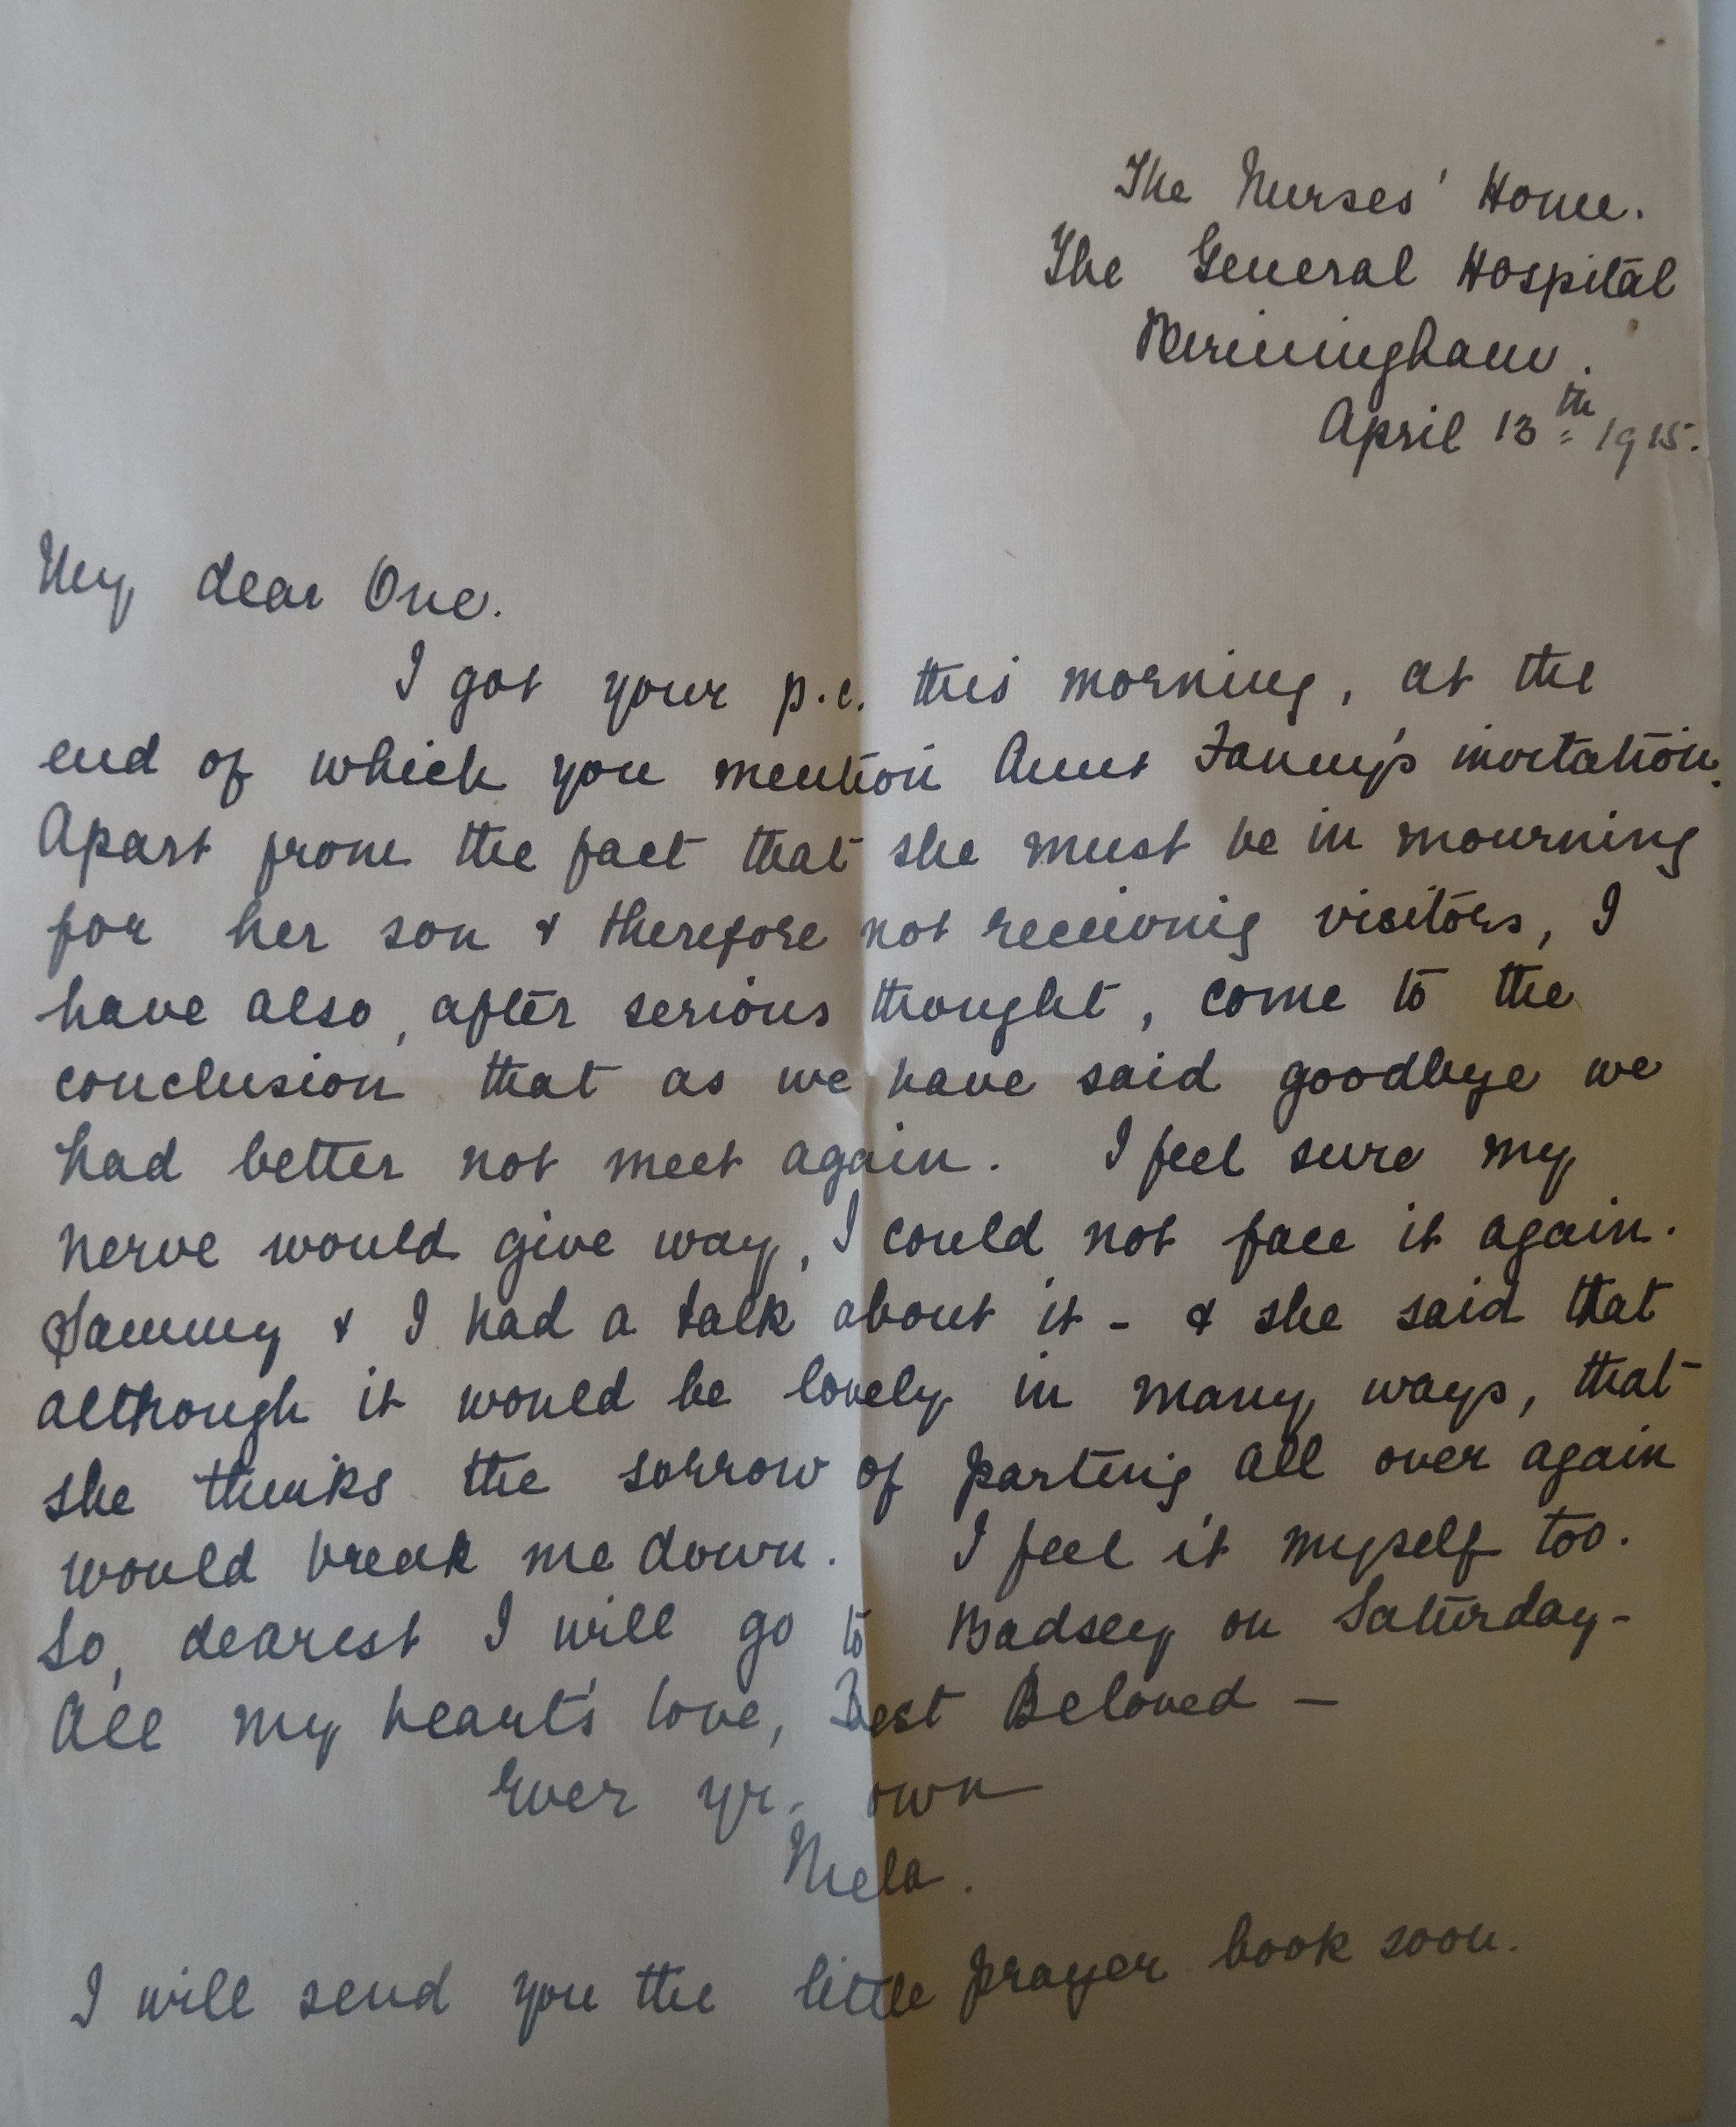 The Nurses' Home.
The General Hospital
Birmingham.
April 13th 1915.
My dear One.
I got your p.c. this morning, at the
end of which you mention Aunt Fanny's invitation.
Apart from the fact that she must be in mourning
for her son & therefore not receiving visitors, I
have also, after serious thought, come to the
conclusion that as we have said goodbye we
had better not meet again. I feel sure my
nerve would give way, I could not face it again.
Sammy & I had a talk about it - & she said that
although it would be lovely in many ways, that
she thinks the sorrow of parting all over again
would break me down. I feel it myself too.
So, dearest I will go to Badsey on Saturday-
All my heart's love, Best Beloved —
Ever yr. own
Mela.
I will send you the little prayer book soon.